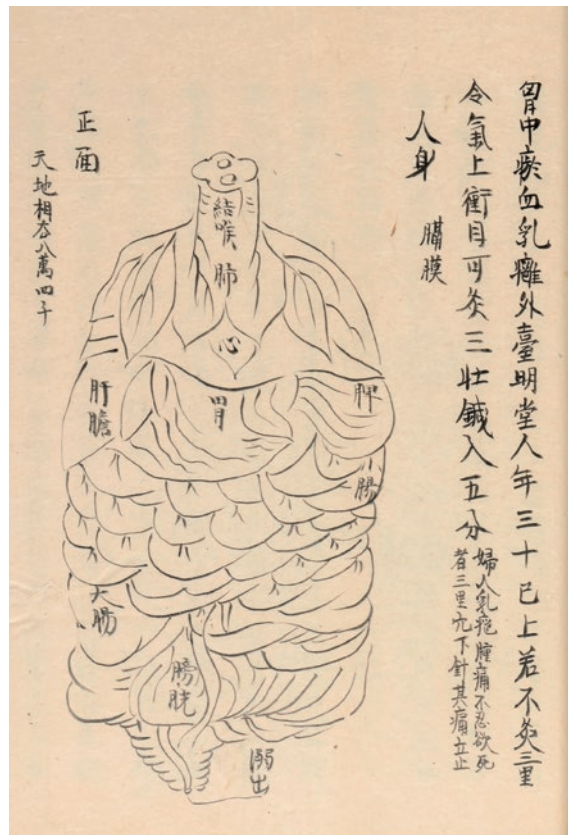 胃中瘀血乳癰外臺明堂人年三十已上若不灸三里
令氣上衝目可灸三壯鍼入五分
婦人乳癰腫痛不忍欲死
者三里穴下針其痛立止
人身
膈膜
正面
天地相去八萬四千
結喉
肺
心
肝膽
胃
脾
小腸
大腸
膀胱
溺出